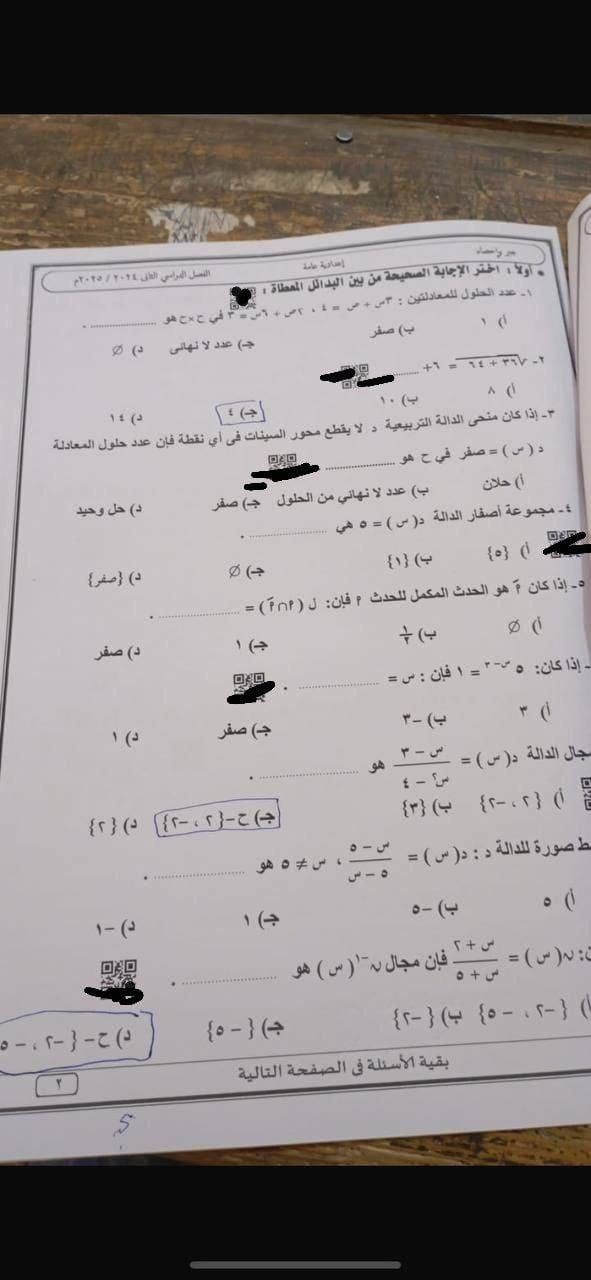 جبر وإحصاء
إعدادية عامة
الفصل الدراسي الثاني ٢٠٢٤ / ٢٠٢٥م
* أولاً : اختر الإجابة الصحيحة من بين البدائل المعطاة :
١- عدد الحلول للمعادلتين : ٣س + ص = ٤ ، ٢ص + ٦س = ٣ في ح×ح هو ............ .
أ) ١ ب) صفر جـ) عدد لا نهائى د) Ø
٢- √٣٦ + ٦٤ = ٦ + ............
أ) ٨ ب) ١٠ جـ) ٤ د) ١٤
٣- إذا كان منحى الدالة التربيعية د لا يقطع محور السينات فى أي نقطة فإن عدد حلول المعادلة
د ( س ) = صفر في ح هو ............
أ) حلان ب) عدد لا نهائي من الحلول جـ) صفر د) حل وحيد
٤- مجموعة أصفار الدالة د( س ) = ٥ هي ............ .
أ) {٥} ب) {١} جـ) Ø د) {صفر}
٥- إذا كان أ̄ هو الحدث المكمل للحدث أ فإن: ل ( أ ∩ أ̄ ) = ............ .
أ) Ø ب) ١/٢ جـ) ١ د) صفر
- إذا كان: ٥^(س-٣) = ١ فإن : س = ............ .
أ) ٣ ب) -٣ جـ) صفر د) ١
مجال الدالة د( س ) = (س - ٣)/(س٢ - ٤) هو ............ .
أ) {٢ ، -٢} ب) {٣} جـ) ح-{٢ ، -٢} د) {٢}
ط صورة للدالة د : د( س ) = (س - ٥)/(٥ - س) ، س ≠ ٥ هو ............ .
أ) ٥ ب) -٥ جـ) ١ د) -١
ن: ن( س ) = (س + ٢)/(س + ٥) فإن مجال ن⁻¹( س ) هو ............ .
) {-٢ ، -٥} ب) {-٢} جـ) {-٥} د) ح-{-٢ ، -٥
بقية الأسئلة فى الصفحة التالية
٢